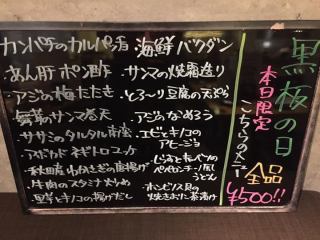 黒板の日
本日限定
こちらのメニュー
全品
¥500!!
カンパチのカルパッチョ
あん肝ポン酢
・アジの梅たたき
無芽のサンマ春天
ササミのタルタル南蛮
アボカドネギトロユッケ
秋田産わかさぎの唐揚げ
牛肉のスタミナ炒め
里芋とキノコの揚げだし
海鮮バクダン
・サンマの焼霜造り
・とろ〜り豆腐の天ぷら
・アジのなめろう
・エビとキノコの
アヒージョ
・しらすとキャベツの
ペペロンチーノ風
うどん
・ホンビノス貝の
焼きおにぎり茶漬け